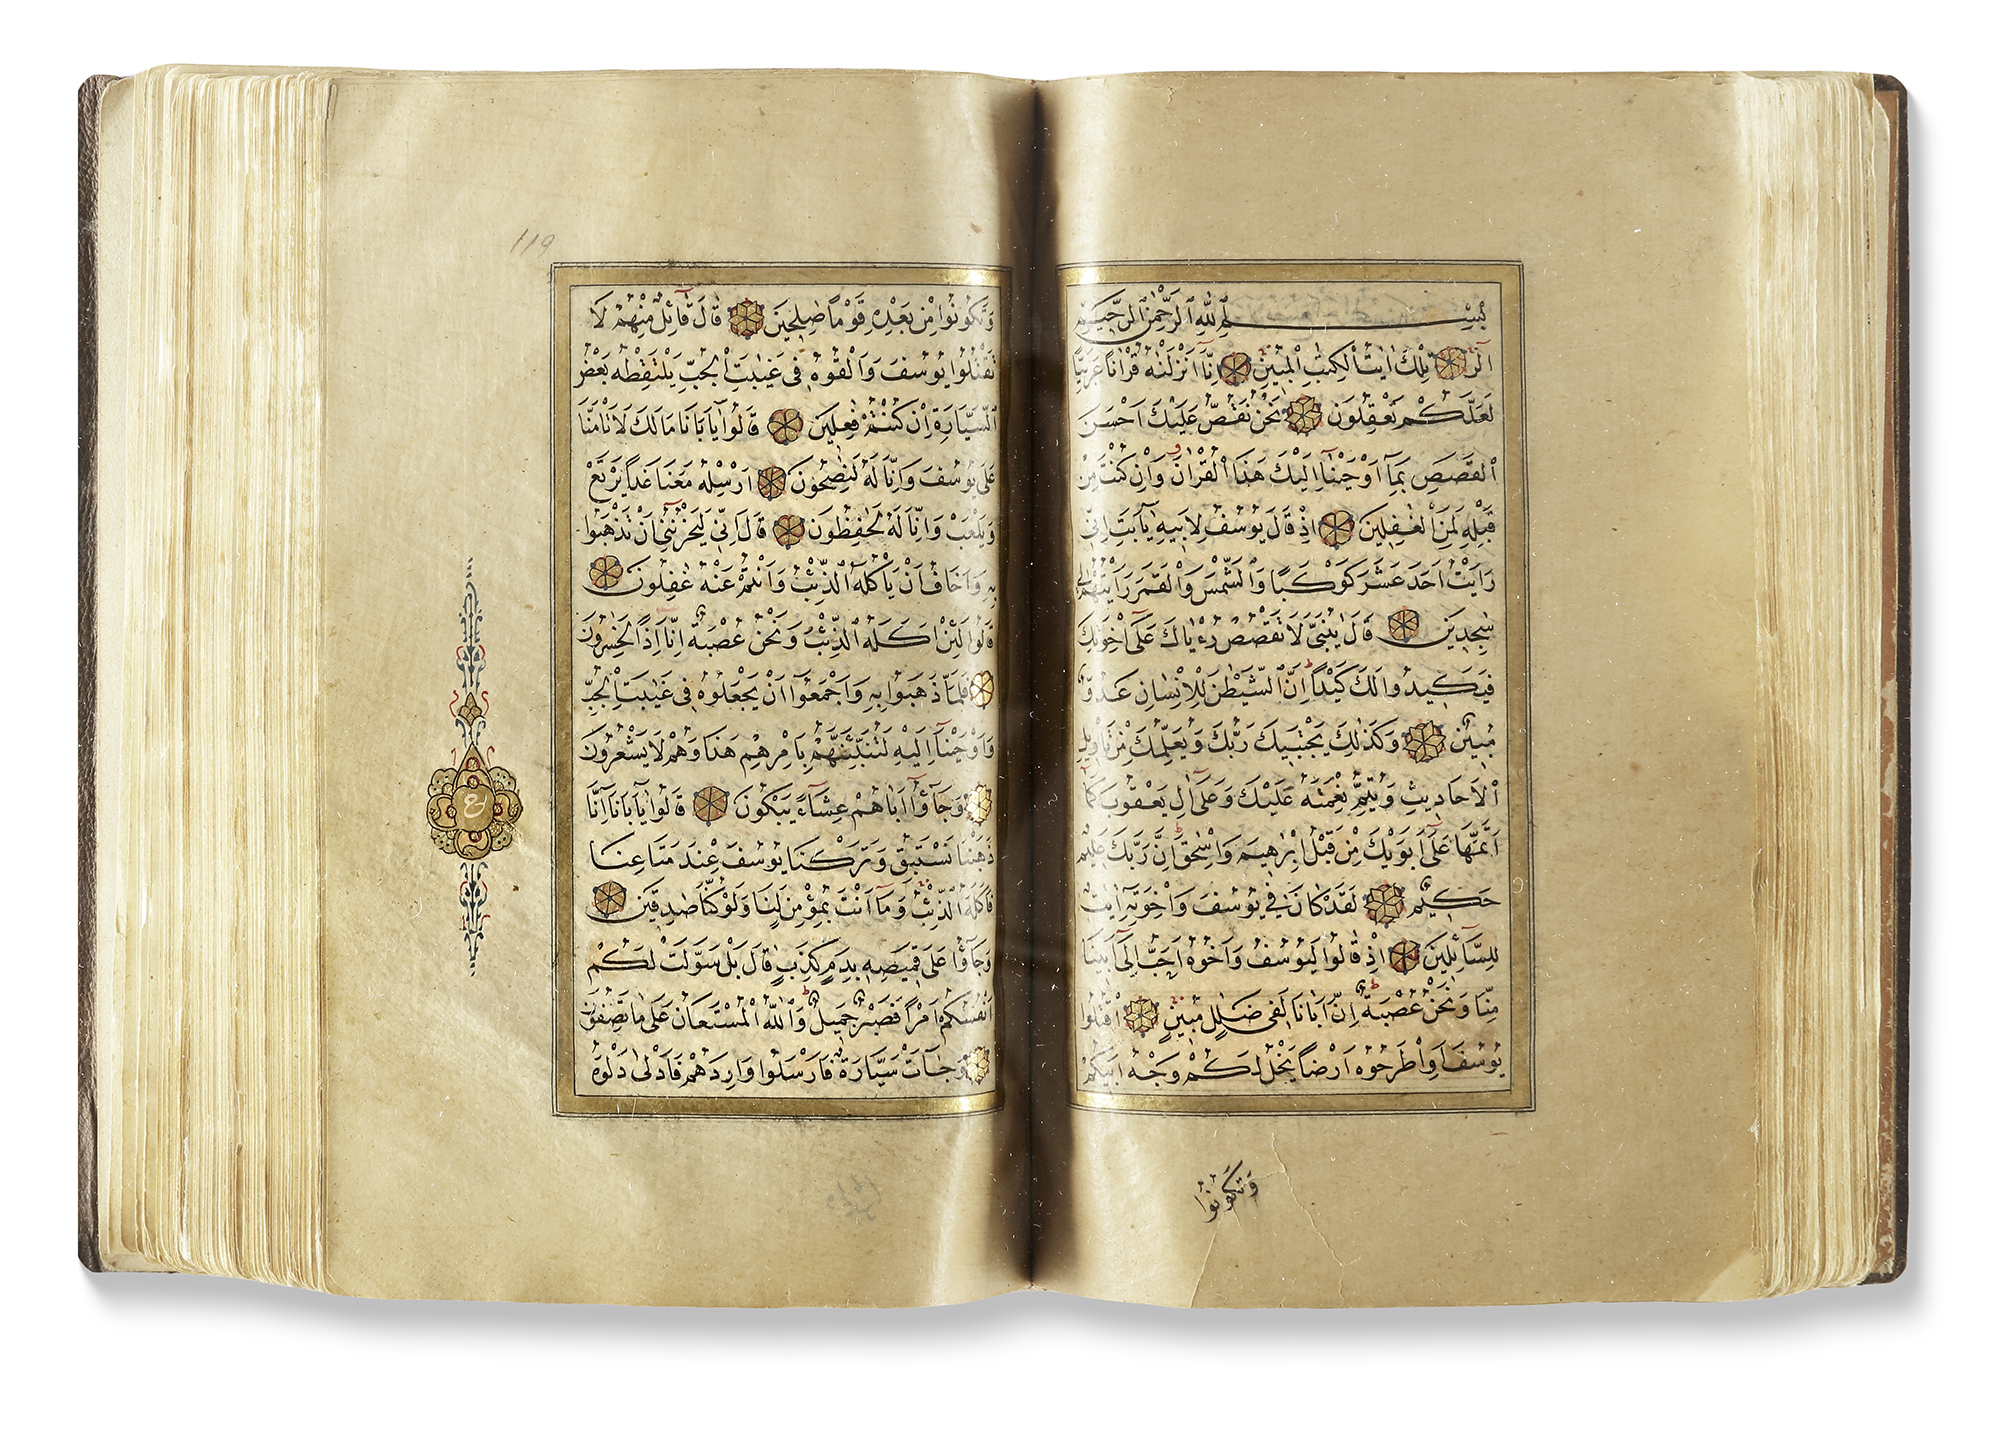 بِسْمِ اللّٰهِ الرَّحْمٰنِ الرَّحِيمِ
الٓرٰ تِلْكَ اٰيَاتُ الْكِتَابِ الْمُبِينِ اِنَّٓا اَنْزَلْنَاهُ قُرْاٰنًا عَرَبِيًّا
لَعَلَّكُمْ تَعْقِلُونَ نَحْنُ نَقُصُّ عَلَيْكَ اَحْسَنَ
الْقَصَصِ بِمَٓا اَوْحَيْنَٓا اِلَيْكَ هٰذَا الْقُرْاٰنَ وَاِنْ كُنْتَ مِنْ
قَبْلِهِ لَمِنَ الْغٰفِلِينَ اِذْ قَالَ يُوسُفُ لِاَبِيهِ يَٓا اَبَتِ اِنِّي
رَاَيْتُ اَحَدَ عَشَرَ كَوْكَبًا وَالشَّمْسَ وَالْقَمَرَ رَاَيْتُهُمْ لِي
سٰجِدِينَ قَالَ يٰبُنَيَّ لَا تَقْصُصْ رُءْيَاكَ عَلٰٓى اِخْوَتِكَ
فَيَكِيدُوا لَكَ كَيْدًا اِنَّ الشَّيْطٰنَ لِلْاِنْسَانِ عَدُوٌّ
مُبِينٌ وَكَذٰلِكَ يَجْتَبِيكَ رَبُّكَ وَيُعَلِّمُكَ مِنْ تَاْوِيلِ
الْاَحَادِيثِ وَيُتِمُّ نِعْمَتَهُ عَلَيْكَ وَعَلٰٓى اٰلِ يَعْقُوبَ كَمَٓا
اَتَمَّهَا عَلٰٓى اَبَوَيْكَ مِنْ قَبْلُ اِبْرٰهِيمَ وَاِسْحٰقَ اِنَّ رَبَّكَ عَلِيمٌ
حَكِيمٌ لَقَدْ كَانَ فِي يُوسُفَ وَاِخْوَتِهِٓ اٰيَاتٌ
لِلسَّٓائِلِينَ اِذْ قَالُوا لَيُوسُفُ وَاَخُوهُ اَحَبُّ اِلٰٓى اَبِينَا
مِنَّا وَنَحْنُ عُصْبَةٌ اِنَّ اَبَانَا لَفِي ضَلٰلٍ مُبِينٍ اقْتُلُوا
يُوسُفَ اَوِ اطْرَحُوهُ اَرْضًا يَخْلُ لَكُمْ وَجْهُ اَبِيكُمْ
وَتَكُونُوا
119
وَتَكُونُوا مِنْ بَعْدِهِ قَوْمًا صٰلِحِينَ قَالَ قَٓائِلٌ مِنْهُمْ لَا
تَقْتُلُوا يُوسُفَ وَاَلْقُوهُ فِي غَيٰبَتِ الْجُبِّ يَلْتَقِطْهُ بَعْضُ
السَّيَّارَةِ اِنْ كُنْتُمْ فٰعِلِينَ قَالُوا يَٓا اَبَانَا مَا لَكَ لَا تَاْمَنَّا
عَلٰى يُوسُفَ وَاِنَّا لَهُ لَنٰصِحُونَ اَرْسِلْهُ مَعَنَا غَدًا يَرْتَعْ
وَيَلْعَبْ وَاِنَّا لَهُ لَحٰفِظُونَ قَالَ اِنِّي لَيَحْزُنُنِٓي اَنْ تَذْهَبُوا
بِهِ وَاَخَافُ اَنْ يَاْكُلَهُ الذِّئْبُ وَاَنْتُمْ عَنْهُ غٰفِلُونَ
قَالُوا لَئِنْ اَكَلَهُ الذِّئْبُ وَنَحْنُ عُصْبَةٌ اِنَّٓا اِذًا لَخٰسِرُونَ
فَلَمَّا ذَهَبُوا بِهِ وَاَجْمَعُٓوا اَنْ يَجْعَلُوهُ فِي غَيٰبَتِ الْجُبِّ
وَاَوْحَيْنَٓا اِلَيْهِ لَتُنَبِّئَنَّهُمْ بِاَمْرِهِمْ هٰذَا وَهُمْ لَا يَشْعُرُونَ
وَجَٓاؤُٓا اَبَاهُمْ عِشَٓاءً يَبْكُونَ قَالُوا يَٓا اَبَانَٓا اِنَّا
ذَهَبْنَا نَسْتَبِقُ وَتَرَكْنَا يُوسُفَ عِنْدَ مَتَاعِنَا
فَاَكَلَهُ الذِّئْبُ وَمَٓا اَنْتَ بِمُؤْمِنٍ لَنَا وَلَوْ كُنَّا صٰدِقِينَ
وَجَٓاؤُا عَلٰى قَمِيصِهِ بِدَمٍ كَذِبٍ قَالَ بَلْ سَوَّلَتْ لَكُمْ
اَنْفُسُكُمْ اَمْرًا فَصَبْرٌ جَمِيلٌ وَاللّٰهُ الْمُسْتَعَانُ عَلٰى مَا تَصِفُونَ
وَجَٓاءَتْ سَيَّارَةٌ فَاَرْسَلُوا وَارِدَهُمْ فَاَدْلٰى دَلْوَهُ
ع